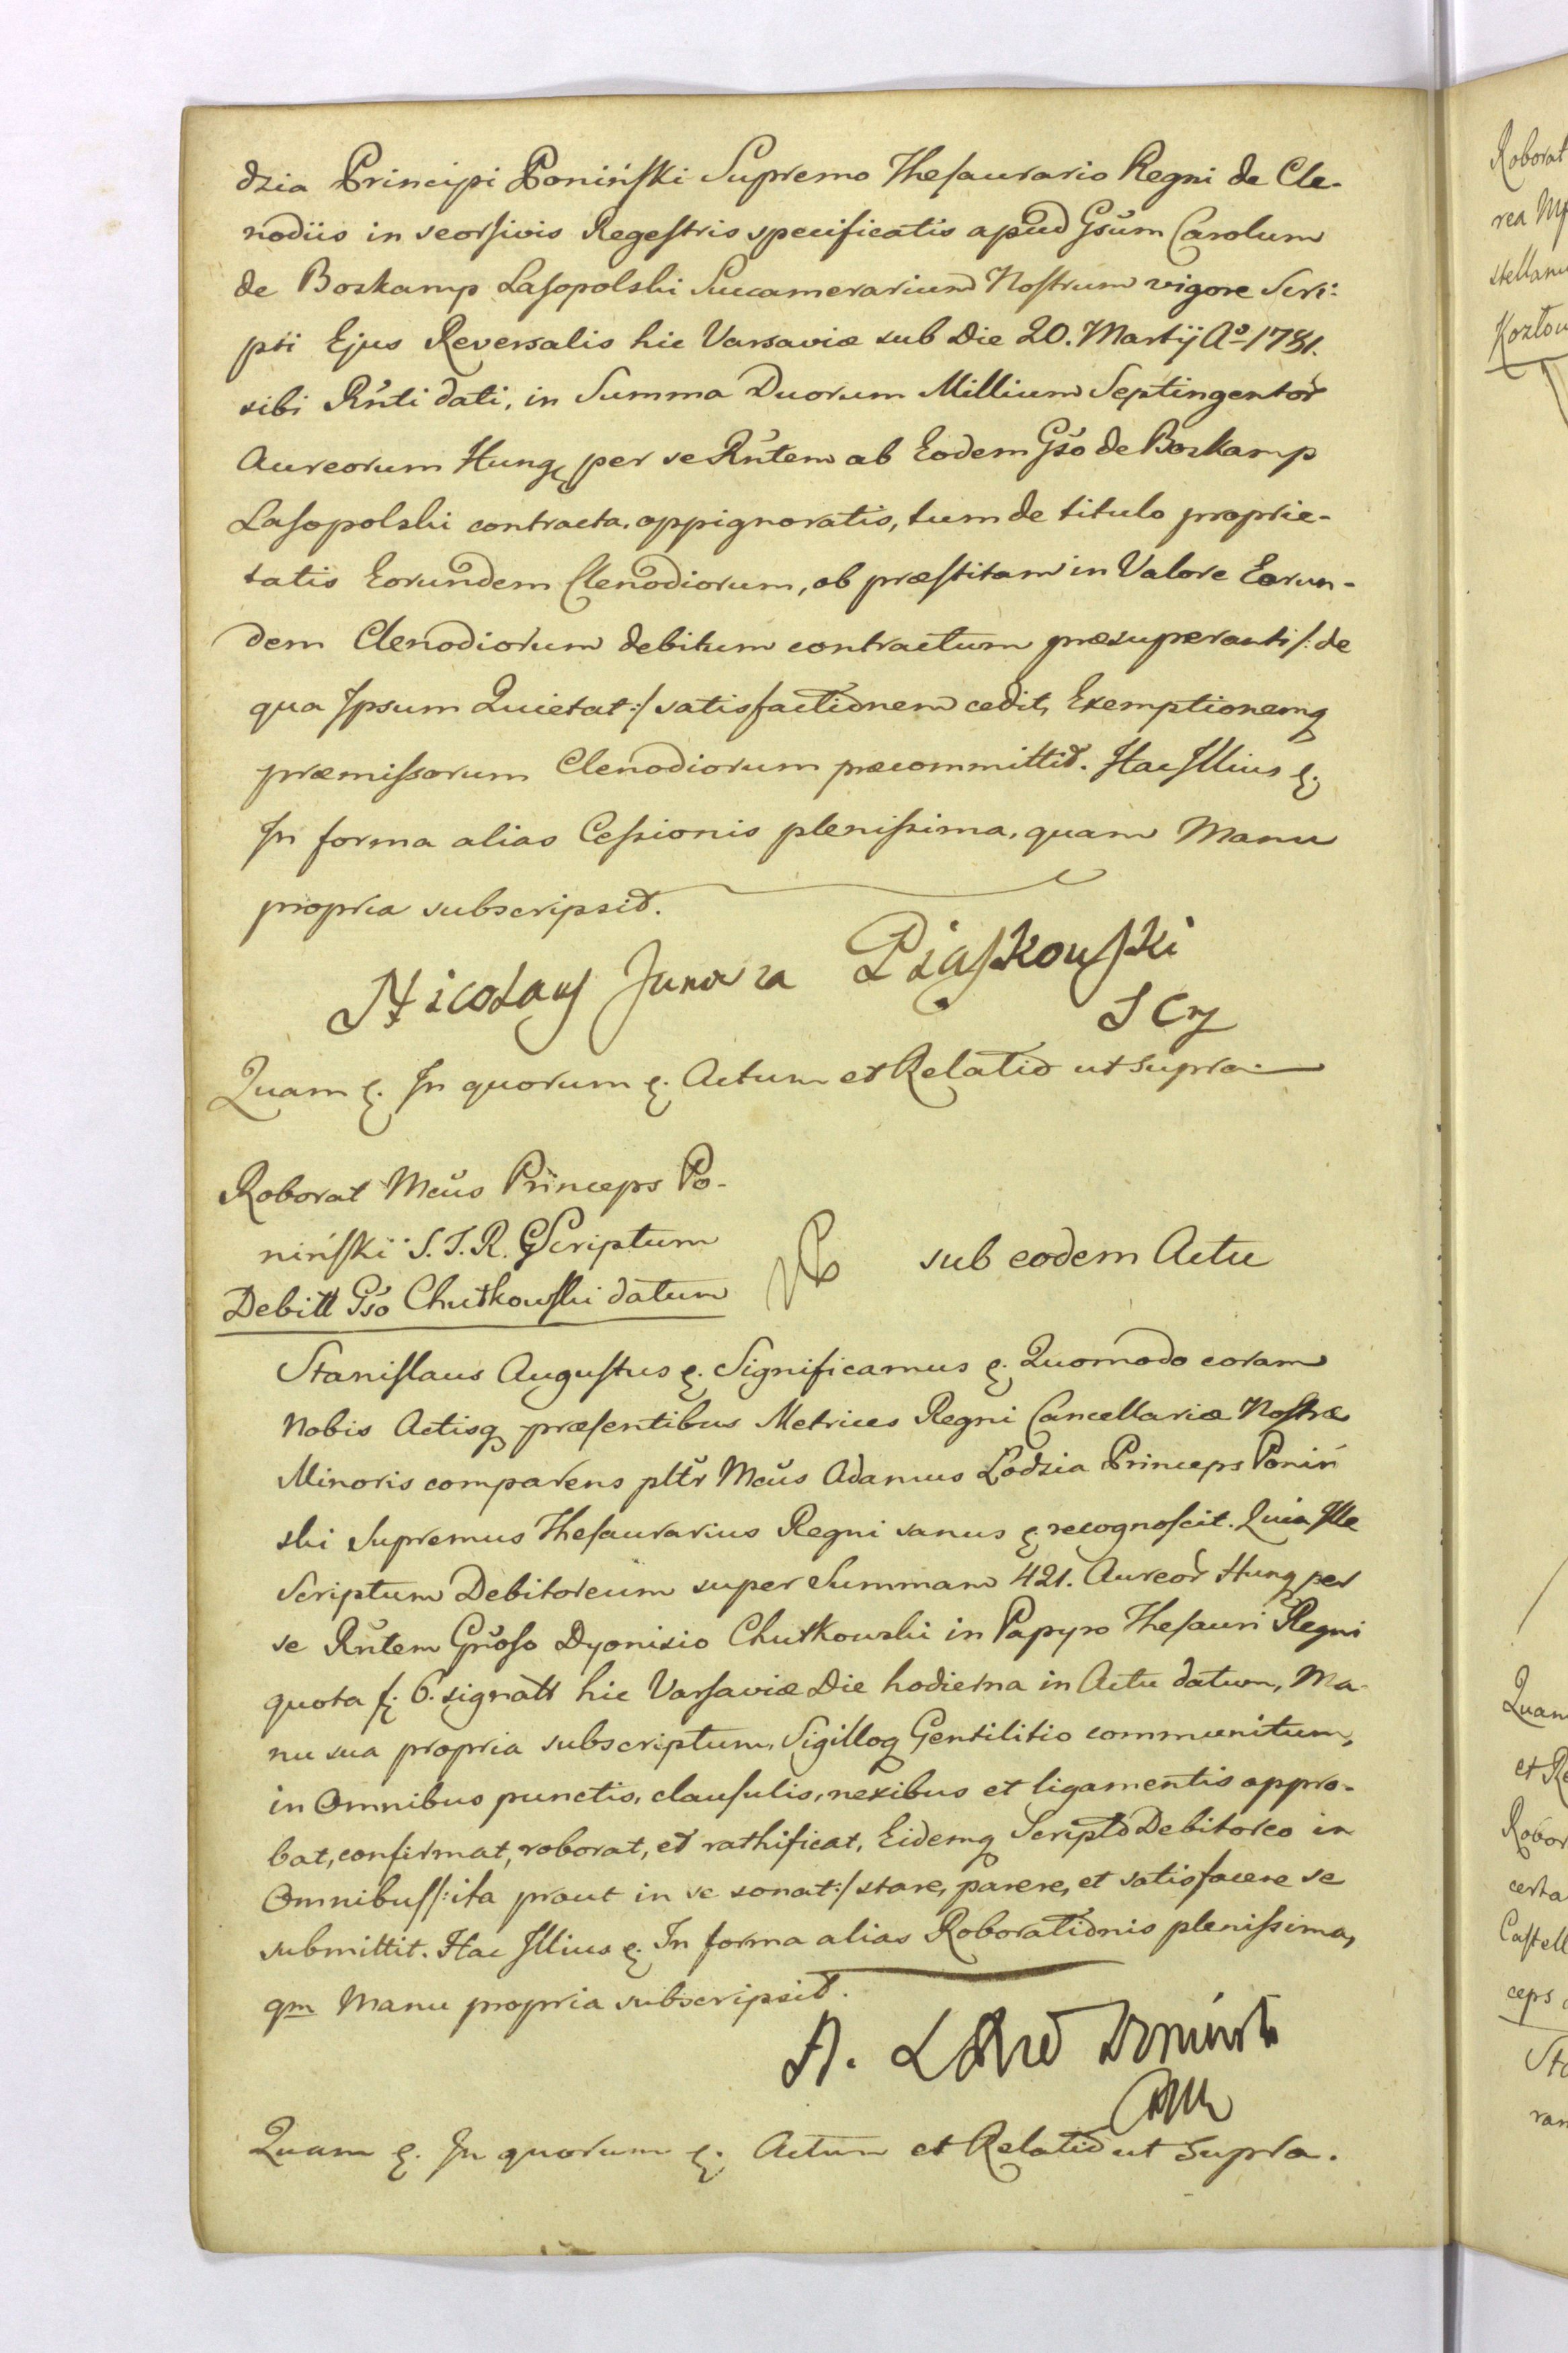 dzia Principi Poniński Supremo Thesaurario Regni de Cle-
nodiis in seorsivis Regestris specificatis apud Gsum Carolum
de Boskamp Lasopolski Succamerarium Nostrum vigore Scri-
pti Ejus Reversalis hic Varsaviæ sub Die 20. Martij Aº 1781.
sibi Rñti dati, in Summa Duorum Millium Septingentor
Aureorum Hung, per se Rñtem ab Eodem Gso de Boskamp
Lasopolski contracta, oppignoratis, tum de titulo proprie-
tatis Eorundem Clenodiorum, ob præstitam in Valore Eorun-
dem Clenodiorum debitum contractum præsuperanti /: de
qua Ipsum Quietat :/ satisfactionem cedit, Exemptionemq
præmissorum Clenodiorum præcommittit. Hac Illius &.
In forma alias Cessionis plenissima, quam Manu
propria subscripsit.
Nicolaus Junosza Piaskowski
Quam &. In quorum &. Actum et Relatio ut supra.
Roborat Mcus Princeps Po-
niński S. T. R. Scriptum
Debitt Gso Chutkowski datum
sub eodem Actu
Stanislaus Augustus &. Significamus &. Quomodo coram
Nobis Actisq præsentibus Metrices Regni Cancellariæ Nostræ
Minoris comparens pltr Mcus Adamus Łodzia Princeps Poniń
ski Supremus Thesaurarius Regni sanus &. recognoscit. Quia Ille
Scriptum Debitoreum super Summam 421. Aureor Hung per
se Rñtem Gnoso Dyonisio Chutkowski in Papyro Thesauri Regni
quota f. 6. signatt hic Varsaviæ Die hodierna in Actu datum, Ma-
nu sua propria subscriptum, Sigilloq Gentilitio communitum,
in Omnibus punctis, clausulis, nexibus et ligamentis appro-
bat, confirmat, roborat, et rathificat, Eidemq Scripto Debitoreo in
Omnibus /: ita prout in se sonat :/ stare, parere, et satisfacere se
submittit. Hac Illius &. In forma alias Roborationis plenissima,
qm Manu propria subscripsit.
A.
Quam &. In quorum &. Actum et Relatio ut supra.
Roborat
rea
stellanu
Quam
et Re
Robor
certa
Castell
ceps
Sta